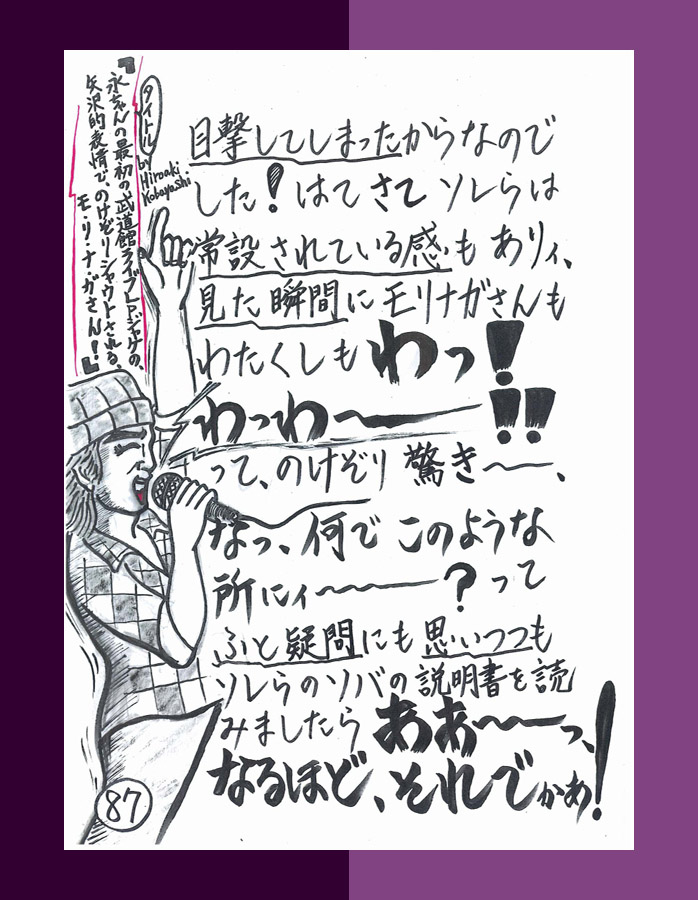 『永ちゃんの最初の武道館ライブLPジャケの、
矢沢的表情で、のけぞりーシャウトされる、
モ・リ・ナ・ガさん!』
タイトル
by
Hiroaki
Kobayashi
目撃してしまったからなので
した!はてさてソレらは
常設されている感もありィ、
見た瞬間にモリナガさんも
わたくしもわっ!
わっわ〜――!!
って、のけぞり驚き〜―、
なっ、何でこのような
所にィ―〜〜―?って
ふと疑問にも思いつつも
ソレらのソバの説明書を読
みましたらああ〜〜―っ、
なるほど、それでかあ!
87